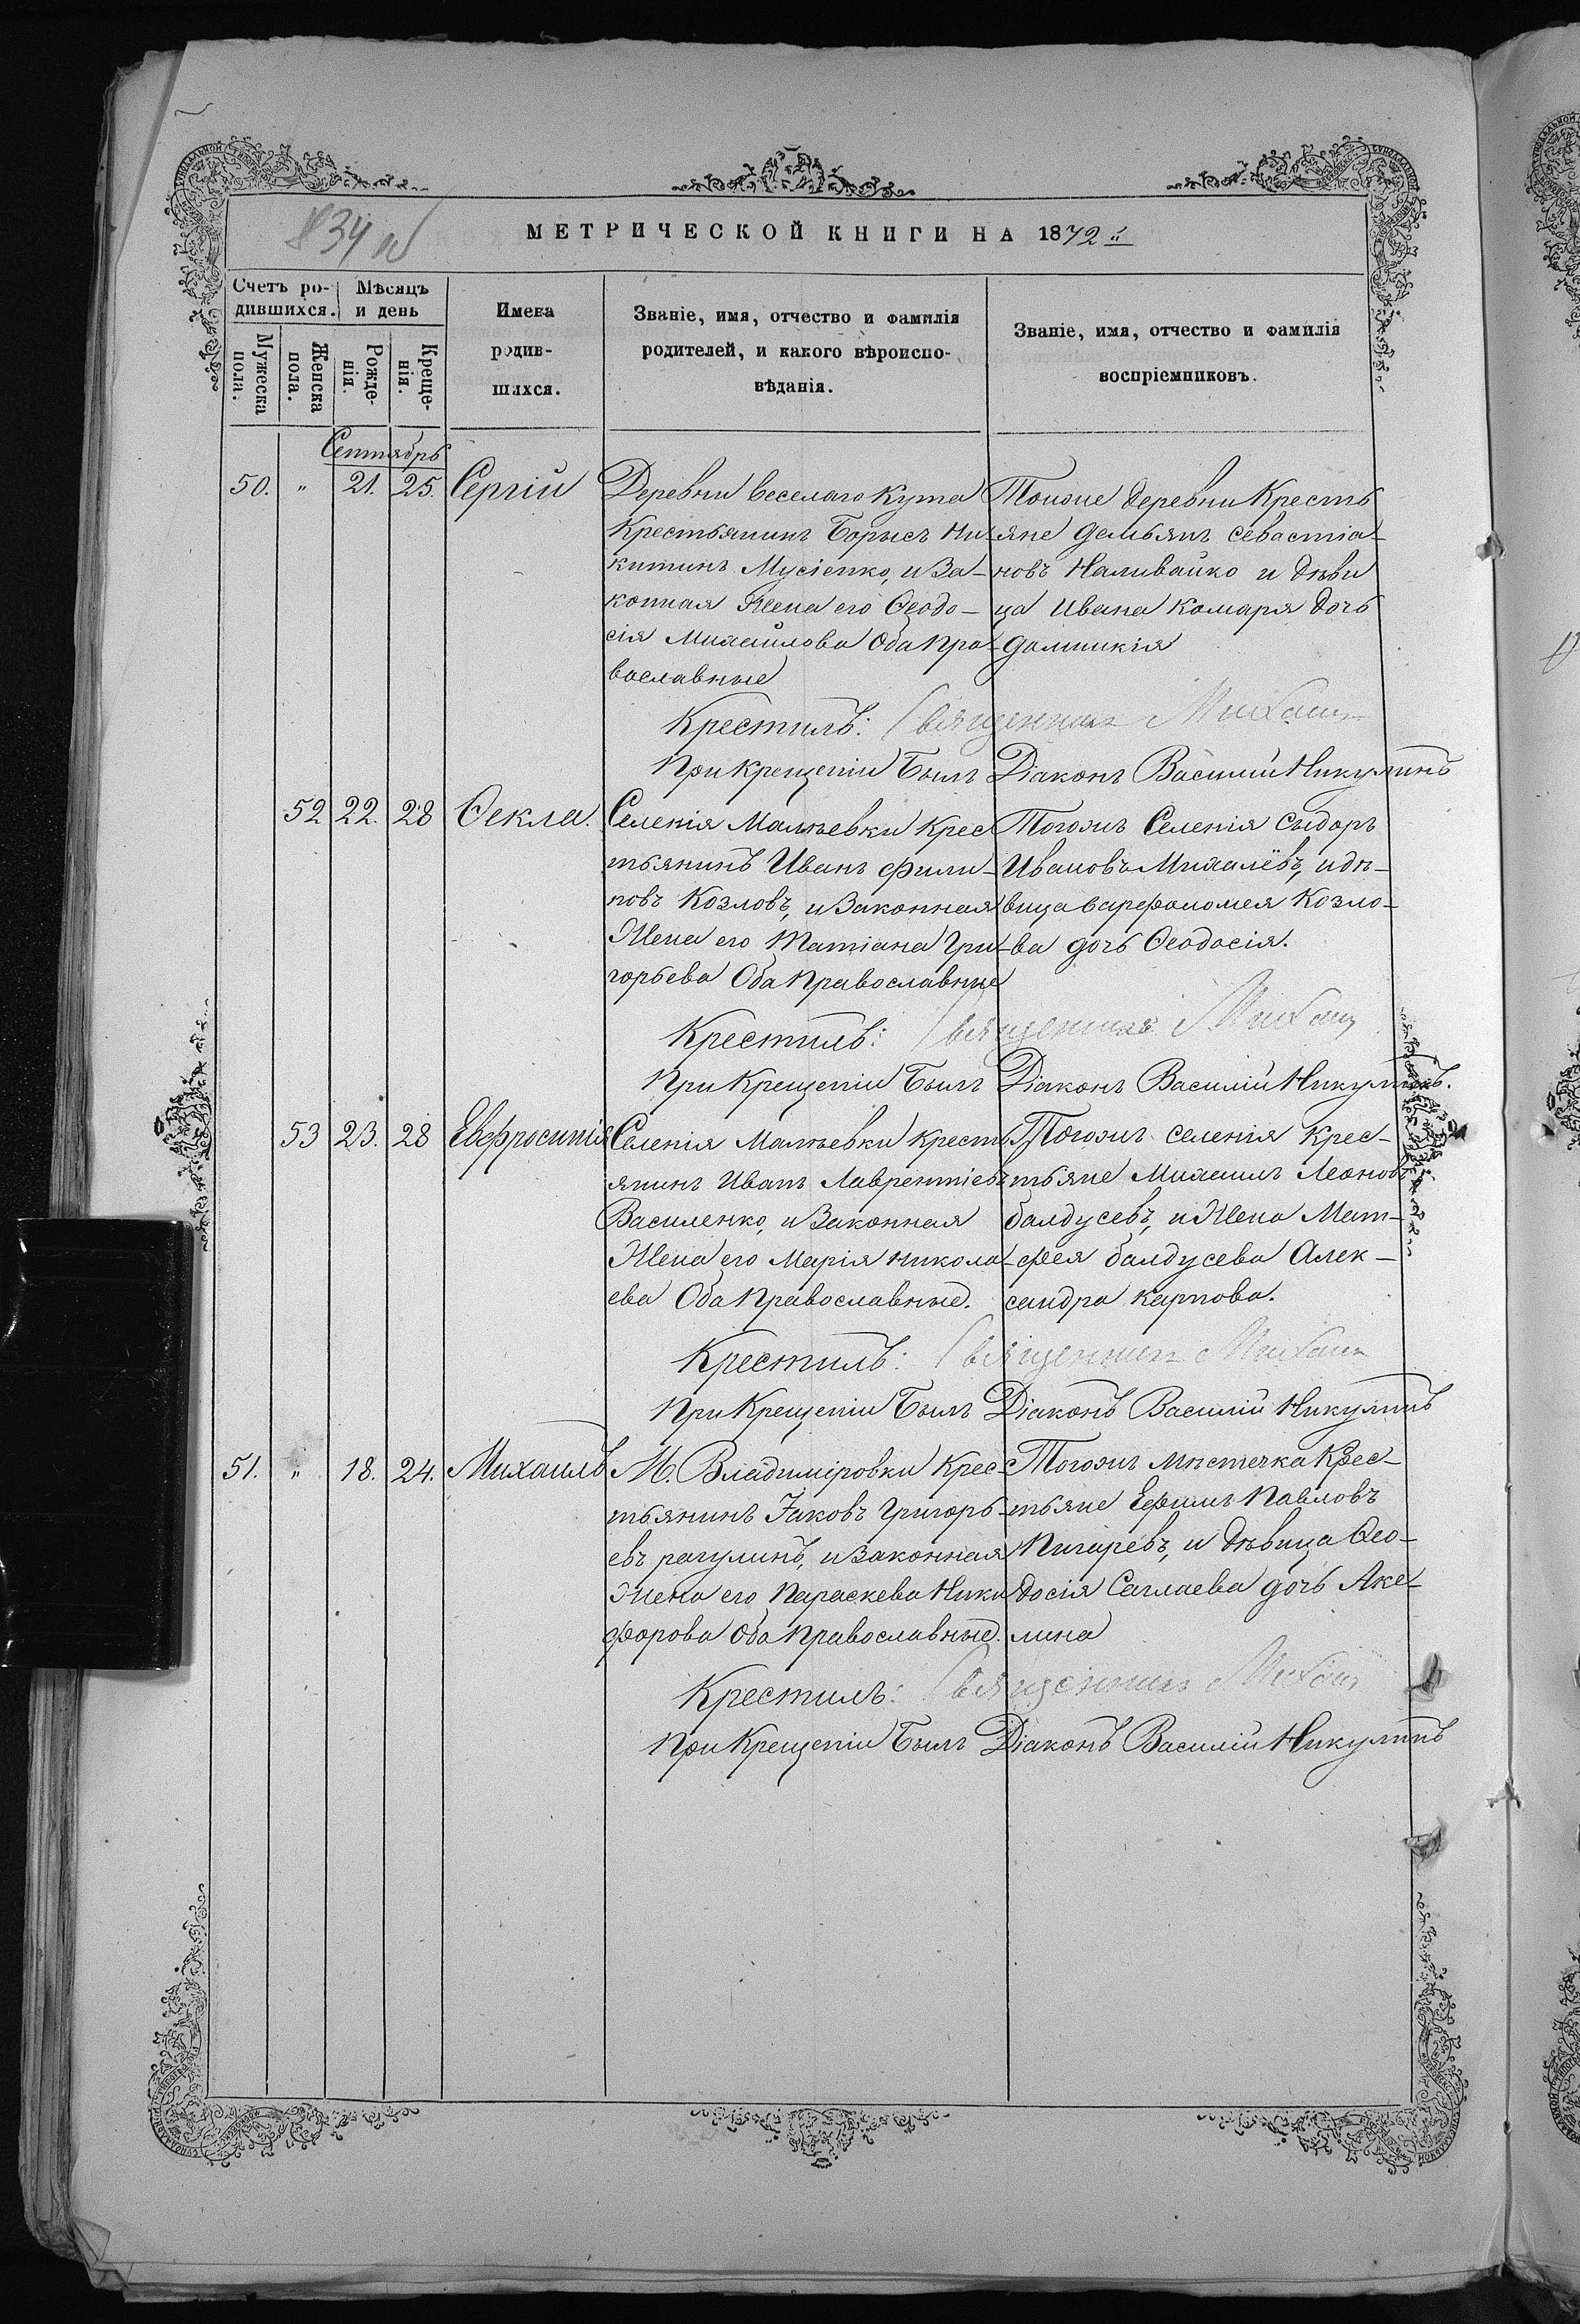 834 об
МЕТРИЧЕСКОЙ КНИГИ НА 1872
Счетъ родившихся.
Мѣсяцъ и день
Имена родившихся.
Званіе, имя, отчество и фамилія родителей, и какого вѣроисповѣданія.
Званіе, имя, отчество и фамилія воспріемниковъ.
Мужеска пола.
Женска пола.
Рожденія.
Крещенія.
Сентябрь
50. " 21. 25. Сергій
Деревни Веселаго Кута
Крестьянинъ Борисъ Ни-
китинъ Мусіенко, и За-
конная Жена его Ѳеодо-
сія Михайлова Оба Пра-
вославные
Тойже деревни Кресть
яне Демьянъ Севастіа-
новъ Наливайко и дѣви
ца Ивана Комаря дочь
Домникія
Крестилъ: Священникъ Михаил
При Крещеніи Былъ Діаконъ Василій Никулинъ
52 22. 28 Ѳекла.
Селенія Малѣевки Крес
тьянинъ Иванъ Фили-
повъ Козловъ, и Законная
Жена его Татіана Гри-
горьева Оба Православные
Тогожъ Селенія Сыдоръ
Ивановъ Михалёвъ, и дѣ-
вица Варфоломея Козло-
ва дочь Ѳеодосія.
Крестилъ: Священникъ Михаил
При Крещеніи Былъ Діаконъ Василій Никулинъ.
53 23. 28 Евфросинія
Селенія Малѣевки Кресть
янинъ Иванъ Лаврентіевъ
Василенко, и Законная
Жена его Марія Никола-
ева Оба Православные.
Тогожъ селенія Крес-
тьяне Михаилъ Леоновъ
Балдусевъ, и Жена Мат-
фея Балдусева Алек-
сандра Карпова.
Крестилъ: Священникъ Михаил
При Крещеніи Былъ Діаконъ Василій Никулинъ
51. " 18. 24. Михаилъ
М. Владиміровки Крес-
тьянинъ Іаковъ Григорь-
евъ Рагулинъ, и Законная
Жена его Параскева Ники
форова Оба Православные.
Тогожъ мѣстечка Крес-
тьяне Ефимъ Павловъ
Пигаревъ, и дѣвица Ѳео-
досія Саглаева дочь Аке-
лина
Крестилъ: Священникъ Михаил
При Крещеніи Былъ Діаконъ Василій Никулинъ